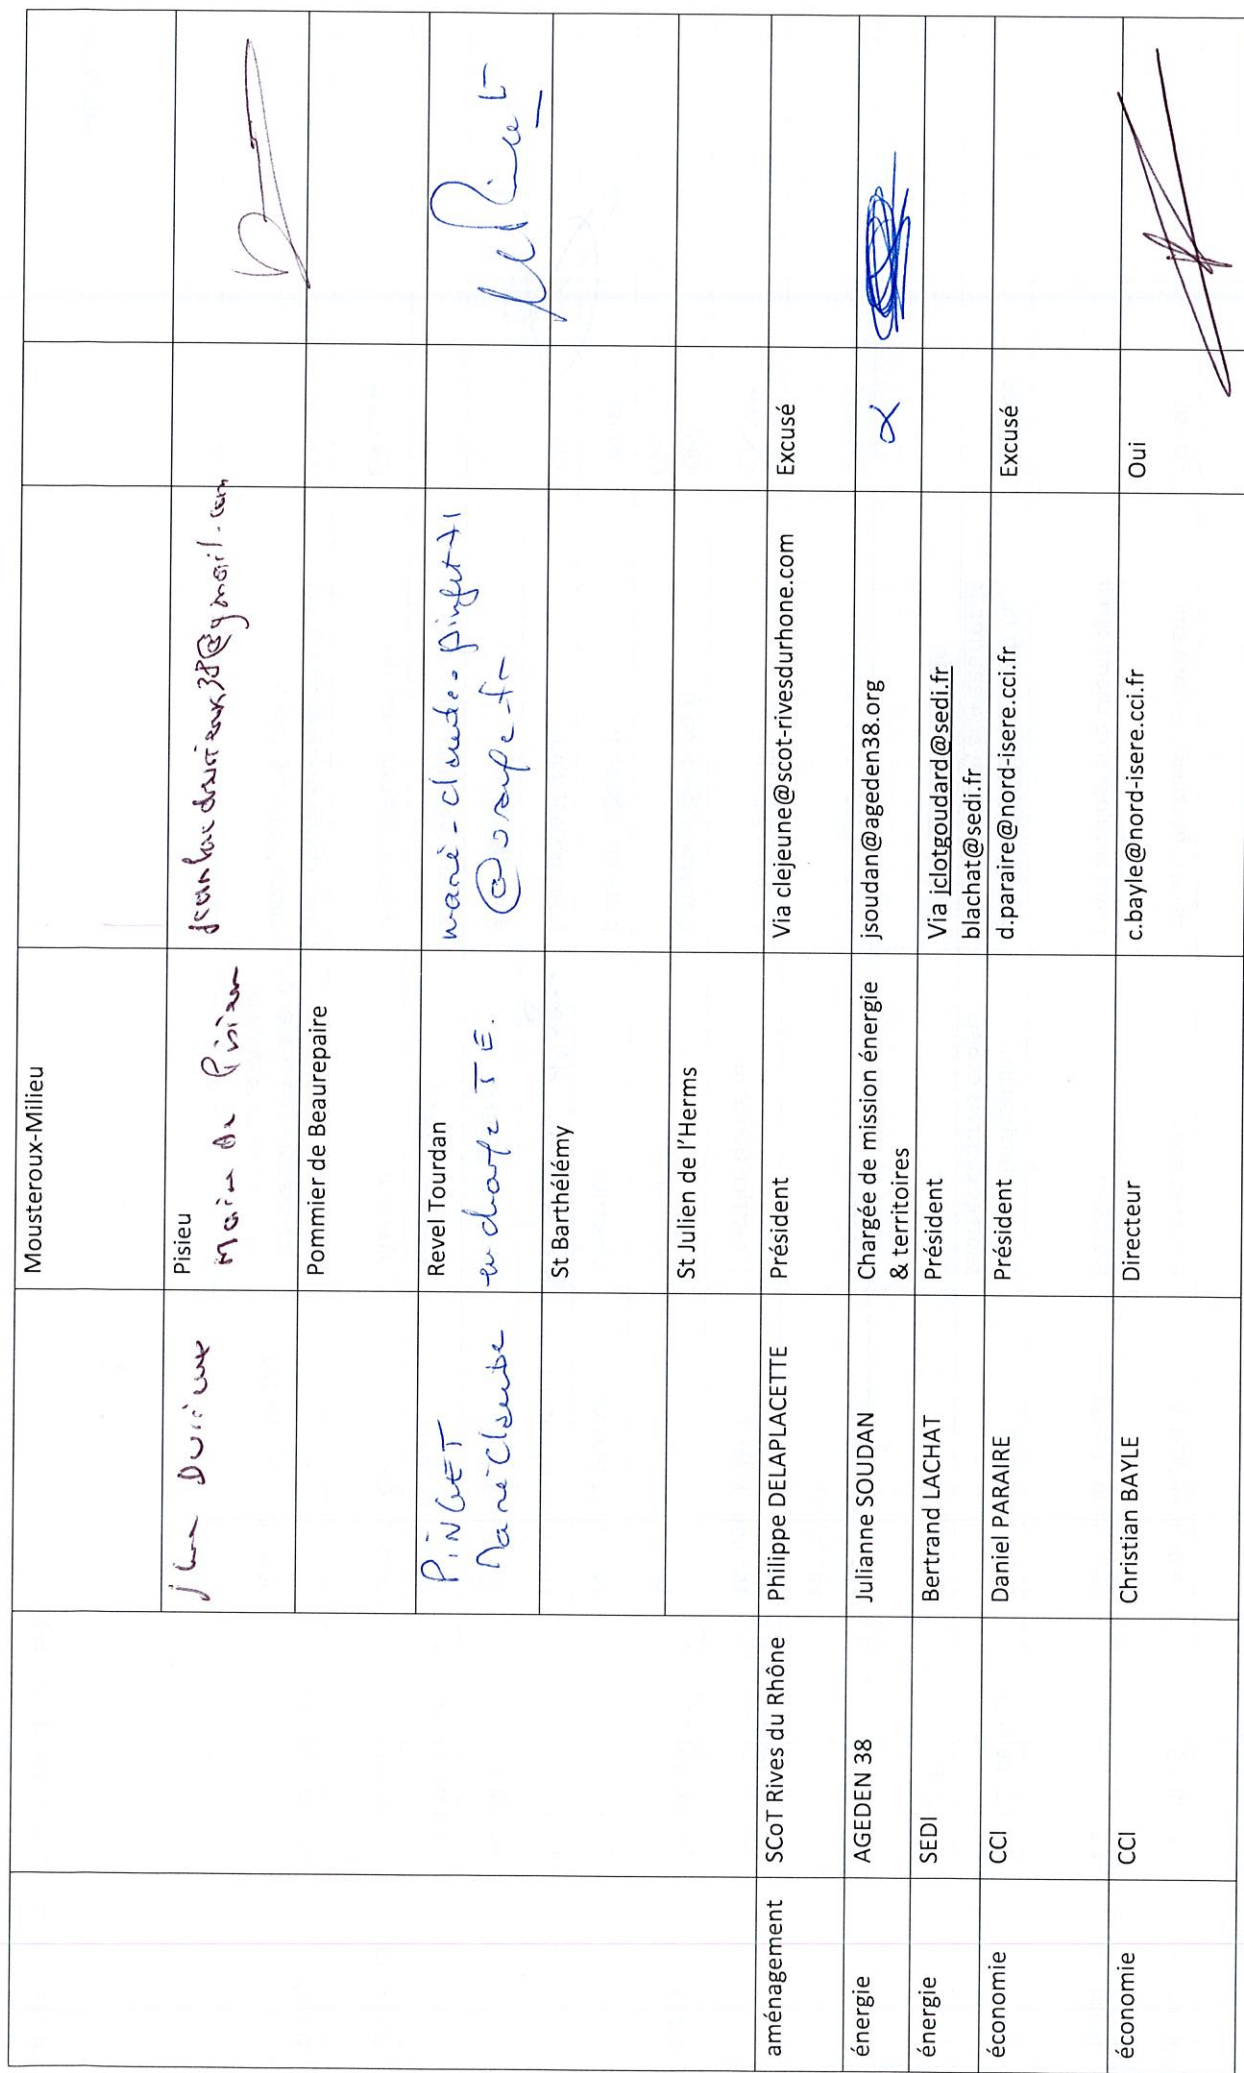 Mousteroux-Milieu
Pisieu
Maire de Pisieu
Pommier de Beaurepaire
PINGET
Marie Claude
Revel Tourdan
en charge TE.
St Barthélémy
St Julien de l'Herms
aménagement SCoT Rives du Rhône Philippe DELAPLACETTE Président Via clejeune@scot-rivesdurhone.com Excusé
énergie AGEDEN 38 Julianne SOUDAN Chargée de mission énergie
& territoires
jsoudan@ageden38.org
énergie SEDI Bertrand LACHAT Président Via jclotgoudard@sedi.fr
blachat@sedi.fr
économie CCI Daniel PARAIRE Président d.paraire@nord-isere.cci.fr Excusé
économie CCI Christian BAYLE Directeur c.bayle@nord-isere.cci.fr Oui